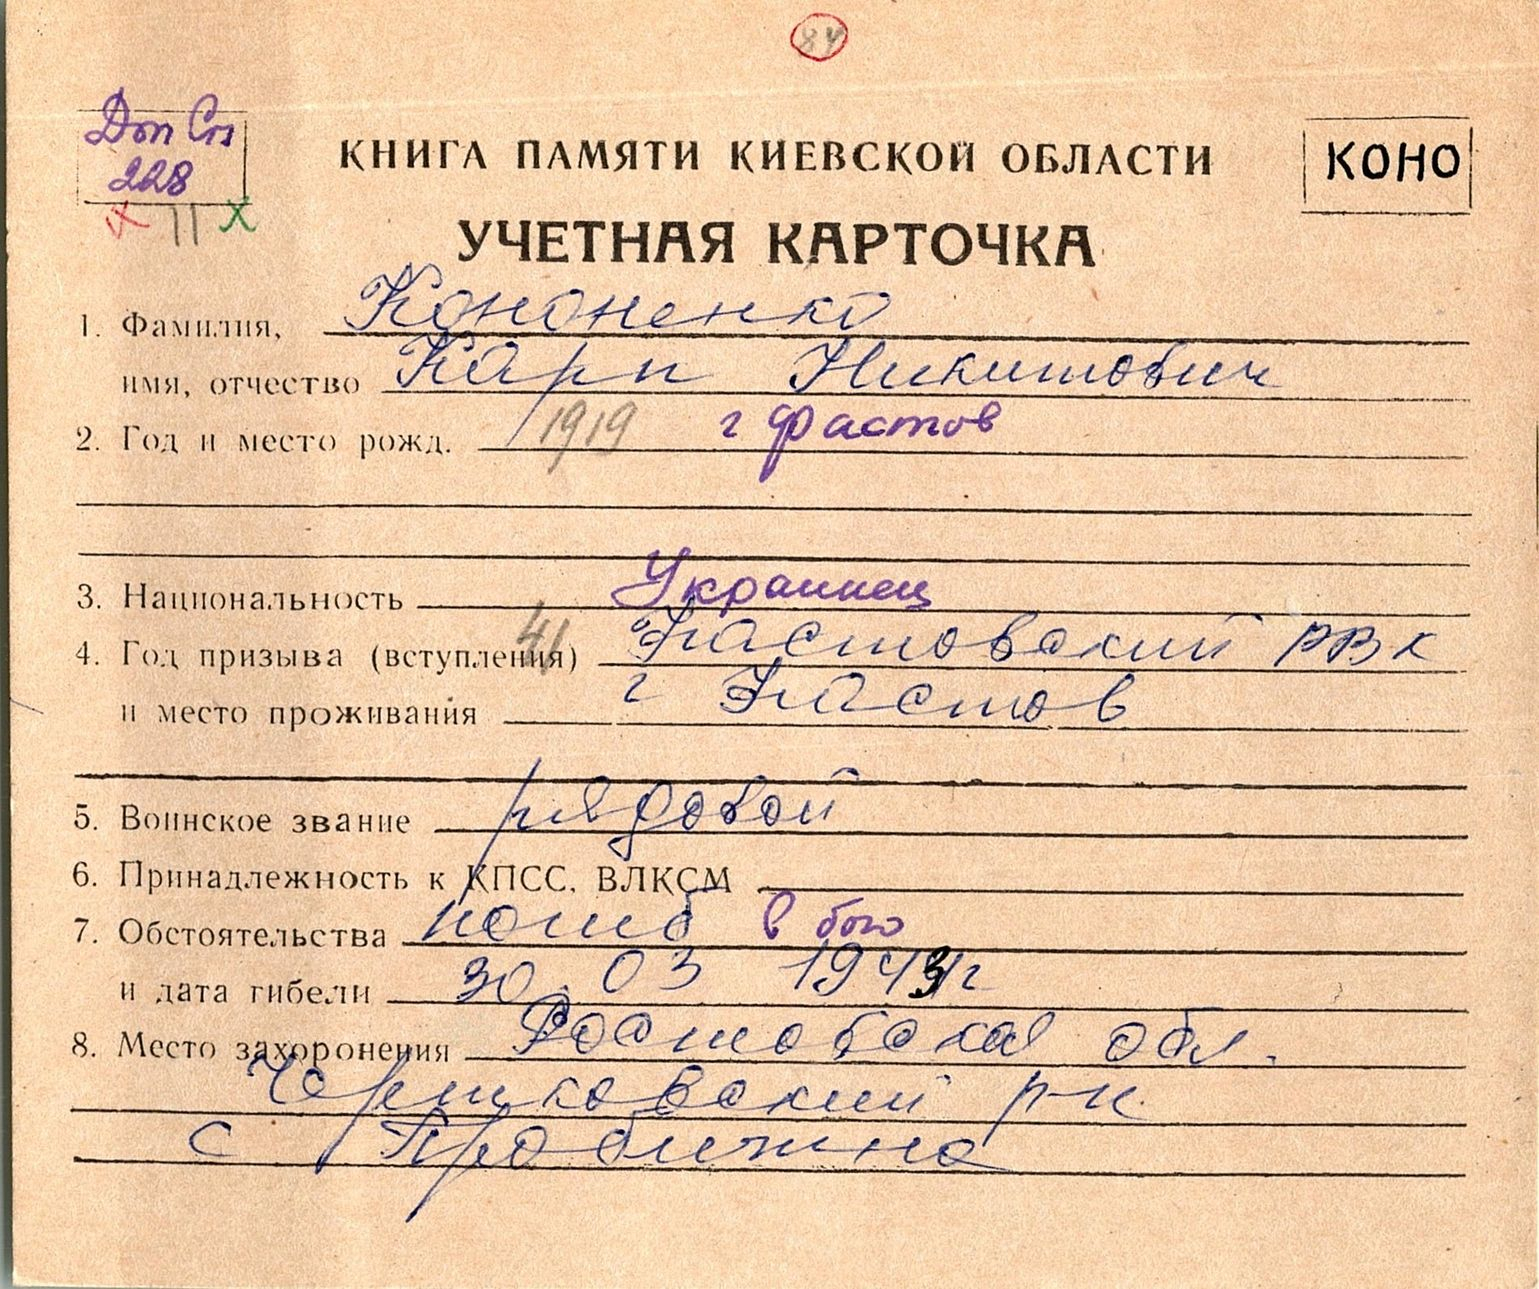 84
Доп Сп
228
КНИГА ПАМЯТИ КИЕВСКОЙ ОБЛАСТИ
КОНО
11
УЧЕТНАЯ КАРТОЧКА
1. Фамилия, Кононенко
имя, отчество Карп Никитович
2. Год и место рожд. 1919 г Фастов
3. Национальность Украинец
4. Год призыва (вступления) 41 Фастовский РВК
и место проживания г Фастов
5. Воинское звание рядовой
6. Принадлежность к КПСС, ВЛКСМ
7. Обстоятельства погиб в бою
и дата гибели 30. 03 1943г
8. Место захоронения Ростовская обл.
р-н
с